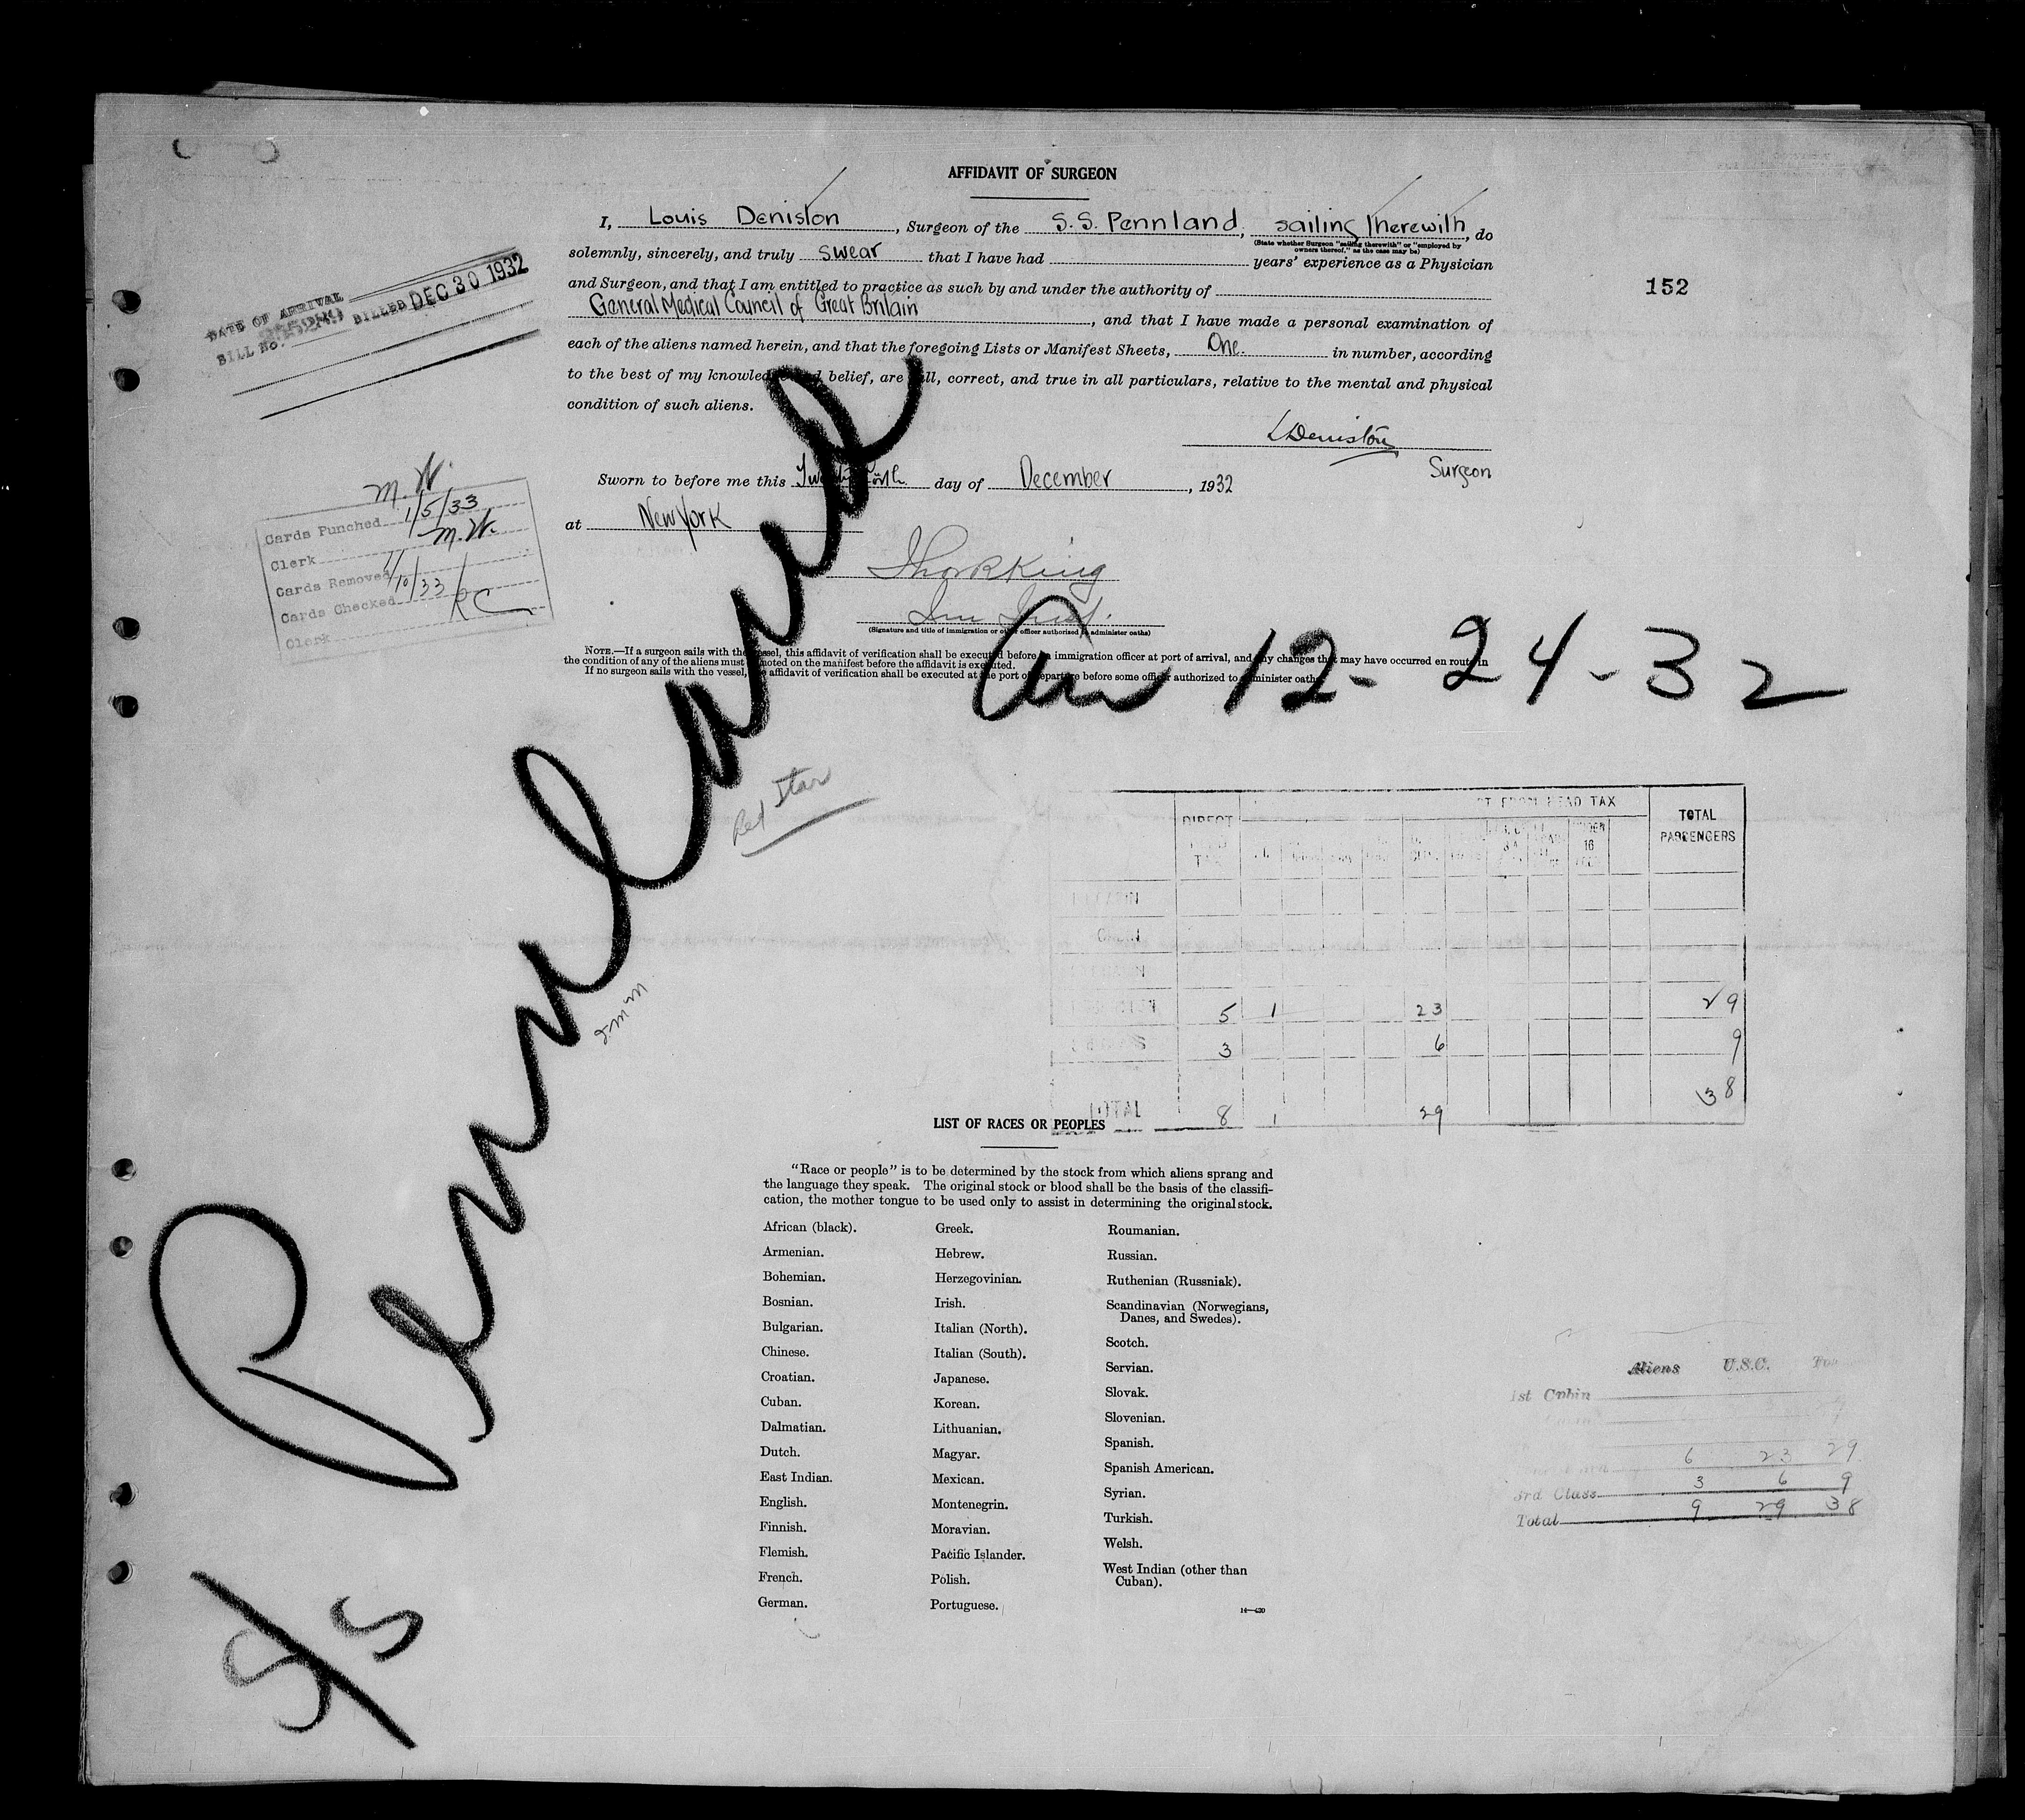 AFFIDAVIT OF SURGEON
I, Louis Deniston, Surgeon of the S.S. Pennland, sailing therewith, do
(State whether Surgeon "sailing therewith" or "employed by
owners thereof," as the case may be)
solemnly, sincerely, and truly swear that I have had years' experience as a Physician
and Surgeon, and that I am entitled to practice as such by and under the authority of
General Medical Council of Great Britain, and that I have made a personal examination of
each of the aliens named herein, and that the foregoing Lists or Manifest Sheets, One. in number, according
to the best of my knowledge and belief, are full, correct, and true in all particulars, relative to the mental and physical
condition of such aliens.
152
DATE OF ARRIVAL
BILL No. BILLED DEC 30 1932
LDeniston
Surgeon
Sworn to before me this Twenty Forth day of December, 1932
at New York
Thor R King
(Signature and title of immigration or other officer authorized to administer oaths)
M. W.
Cards Punched 1/5/33
Clerk M. W.
Cards Removed
Cards Checked 1/10/33
Clerk
NOTE.—If a surgeon sails with the vessel, this affidavit of verification shall be executed before an immigration officer at port of arrival, and any changes that may have occurred en route in
the condition of any of the aliens must be noted on the manifest before the affidavit is executed.
If no surgeon sails with the vessel, the affidavit of verification shall be executed at the port of departure before some officer authorized to administer oaths.
Arr 12-24-32
S/S Pennland
Red Star
DIRECT HEAD TAX
HEAD TAX
TOTAL
PASSENGERS
16
5 1 23 29
3 6 9
38
TOTAL 8 1 29
LIST OF RACES OR PEOPLES
"Race or people" is to be determined by the stock from which aliens sprang and
the language they speak. The original stock or blood shall be the basis of the classifi-
cation, the mother tongue to be used only to assist in determining the original stock.
African (black).
Armenian.
Bohemian.
Bosnian.
Bulgarian.
Chinese.
Croatian.
Cuban.
Dalmatian.
Dutch.
East Indian.
English.
Finnish.
Flemish.
French.
German.
Greek.
Hebrew.
Herzegovinian.
Irish.
Italian (North).
Italian (South).
Japanese.
Korean.
Lithuanian.
Magyar.
Mexican.
Montenegrin.
Moravian.
Pacific Islander.
Polish.
Portuguese.
Roumanian.
Russian.
Ruthenian (Russniak).
Scandinavian (Norwegians,
Danes, and Swedes).
Scotch.
Servian.
Slovak.
Slovenian.
Spanish.
Spanish American.
Syrian.
Turkish.
Welsh.
West Indian (other than
Cuban).
Aliens U.S.C.
1st Cabin
6 23 29
3rd Class 3 6 9
Total 9 29 38